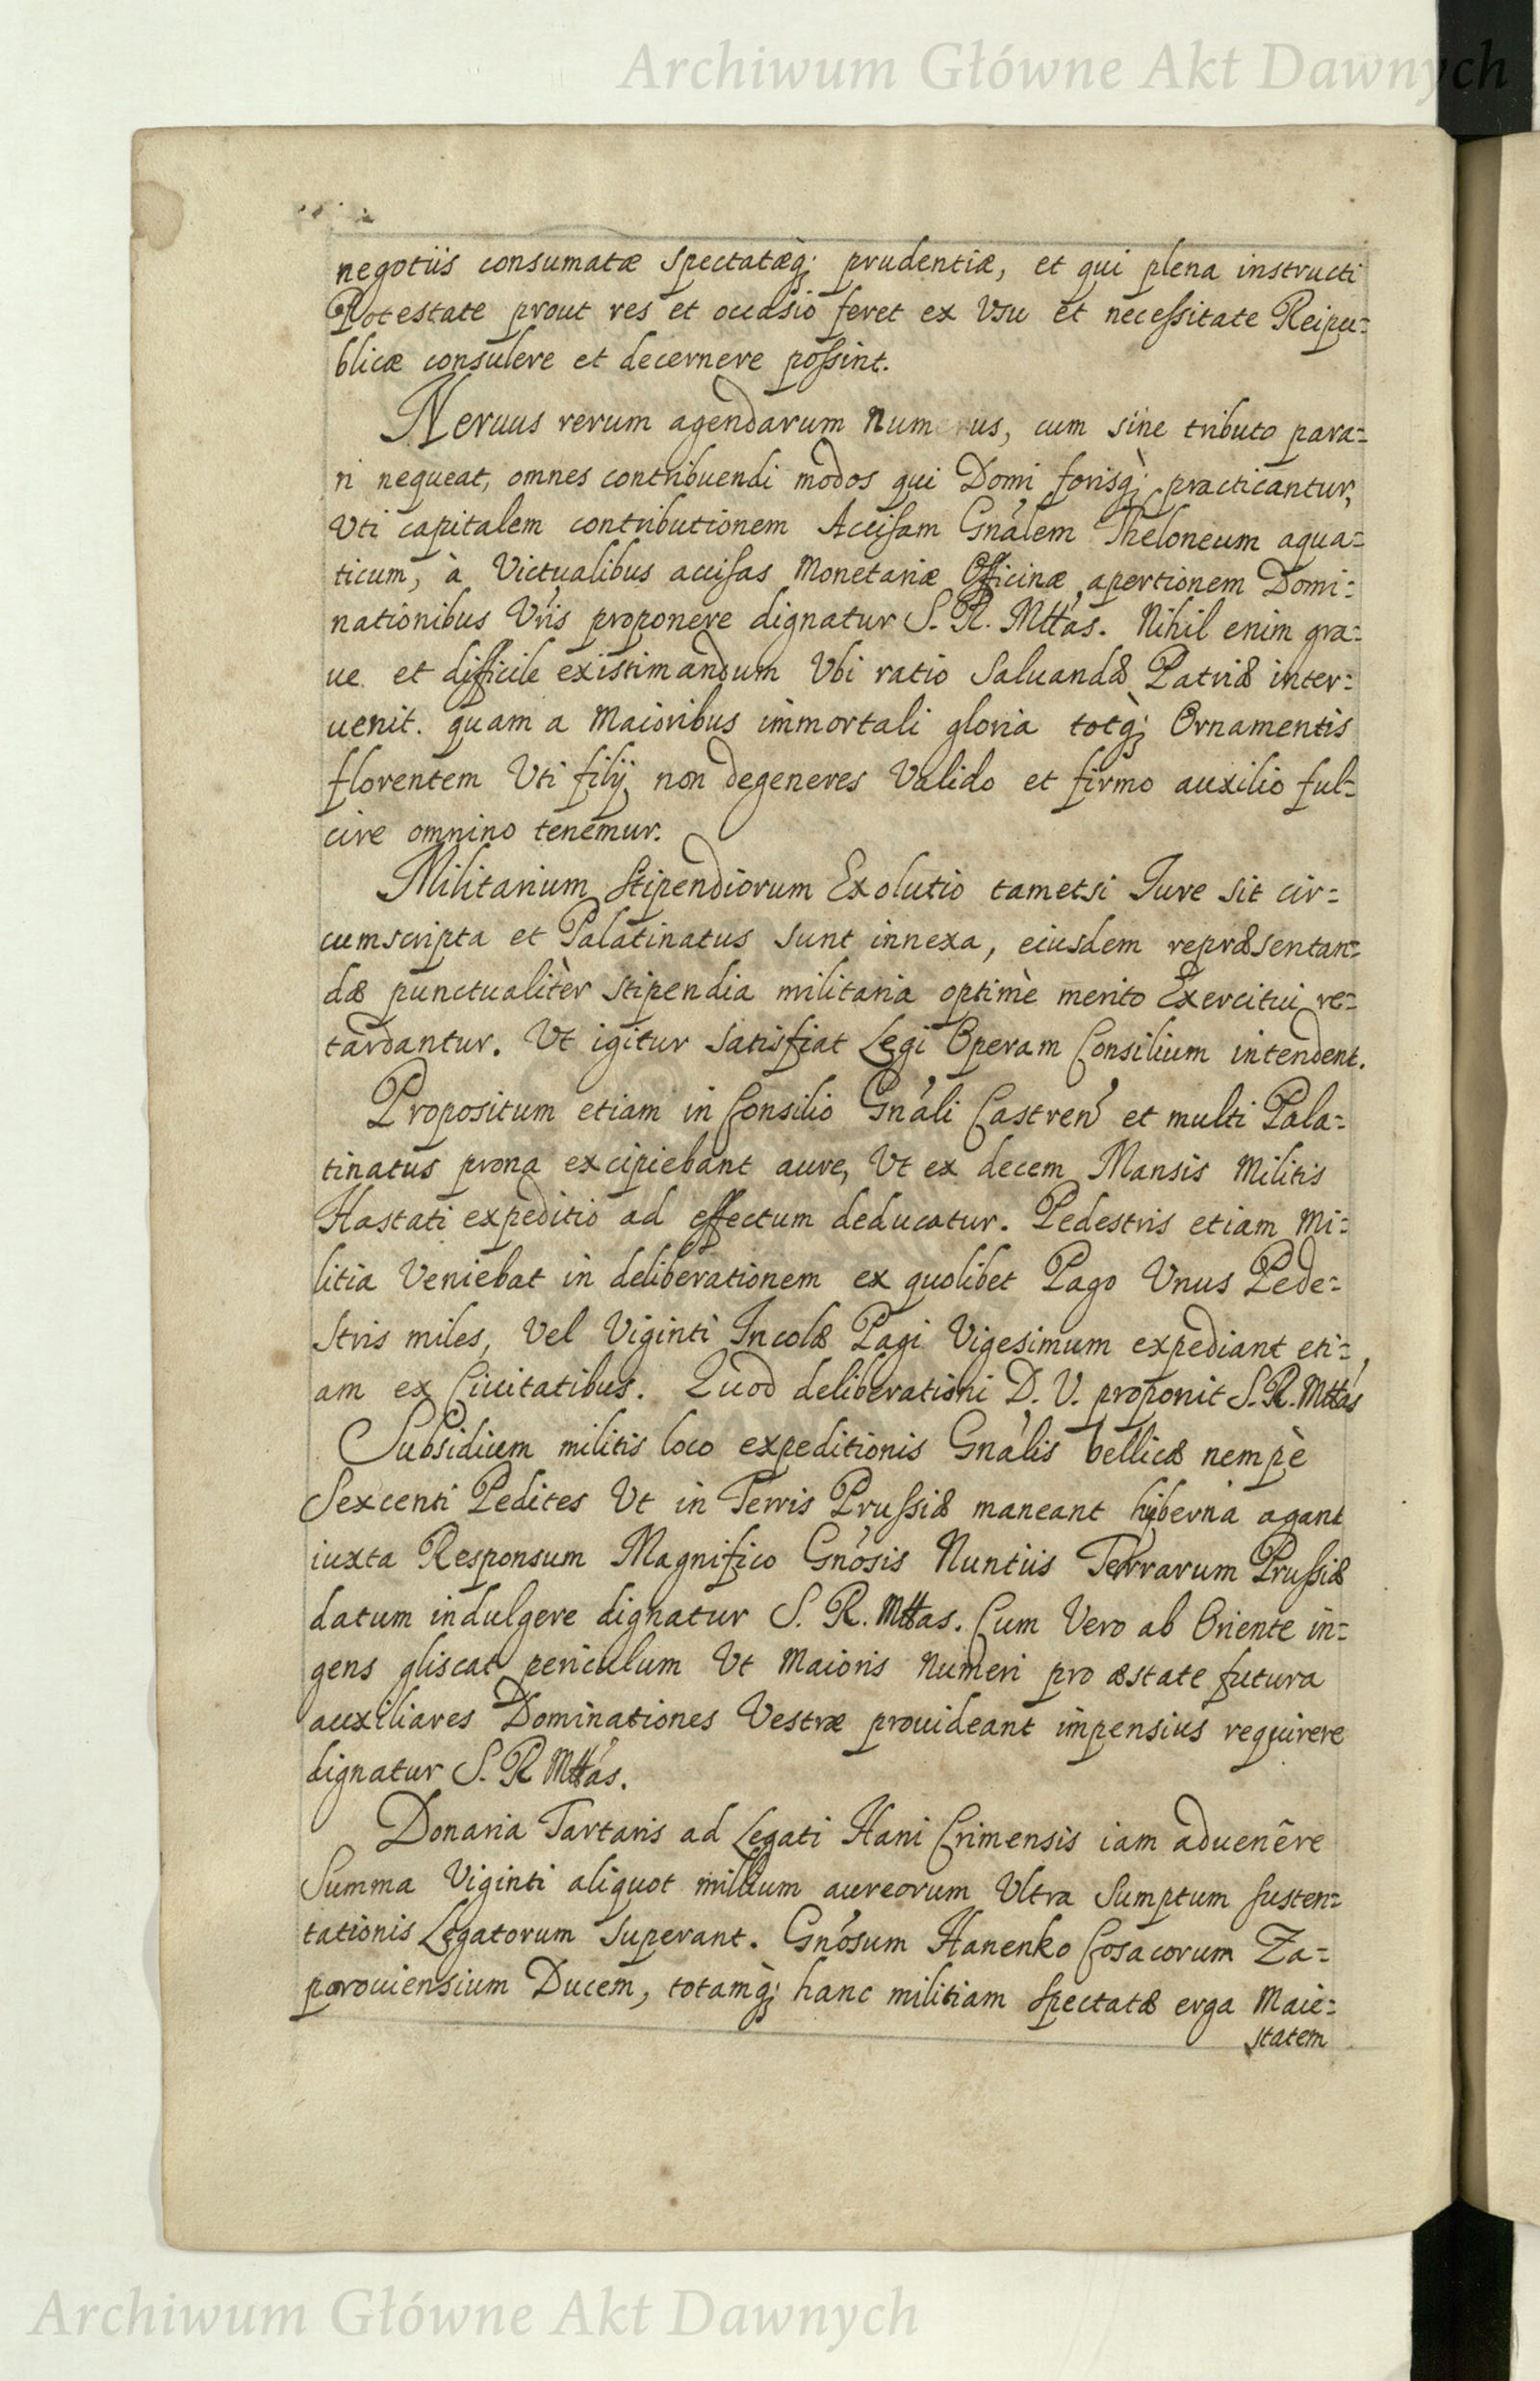 Archiwum Główne Akt Dawnych
negotiis consumatæ spectatæq́; prudentiæ, et qui plena instructi
Potestate prout res et occasio feret ex Vsu et necessitate Reipu=
blicæ consulere et decernere possint.
Neruus rerum agendarum Num us, cum sine tributo para=
ri nequeat, omnes contribuendi modos qui Domi forisq̀; practicantur,
Vti capitalem contributionem Accisam Gnálem Theloneum aqua=
ticum, à Victualibus accisas Monetariæ Officinæ apertionem Domi=
nationibus Vris proponere dignatur S. R. Mttás. Nihil enim gra=
ue et difficile existimandum Vbi ratio Saluandæ Patriæ inter=
uenit. quam a Maioribus immortali gloria totq̀; Ornamentis
florentem Vti filij non degeneres Valido et firmo auxilio ful=
cire omnino tenemur.
Militarium Stipendiorum Exolutio tametsi Iure sit cir=
cumscripta et Palatinatus sunt innexa, eiusdem repræsentan=
dæ punctualitèr stipendia militaria optimè merito Exercitui re=
tardantur. Ut igitur satisfiat Legi Operam Consilium intendent.
Propositum etiam in Consilio Gnáli Castren' et multi Pala=
tinatus prona excipiebant aure, Vt ex decem Mansis Militis
Hastati expeditio ad effectum deducatur. Pedestris etiam Mi=
litia Veniebat in deliberationem ex quolibet Pago Unus Pede=
stris miles, Vel Viginti Incolæ Pagi Vigesimum expediant eti=
am ex Ciuitatibus. Quod deliberationi D. V. proponit S. R. Mttás
Subsidium militis loco expeditionis Gnális bellicæ nempè
Sexcenti Pedites Vt in Terris Prussiæ maneant hyberna agant
iuxta Responsum Magnifico Gnósis Nuntiis Terrarum Prussiæ
datum indulgere dignatur S. R. Mttas. Cum Vero ab Oriente in=
gens gliscat periculum Vt Maioris Numeri pro æstate futura
auxiliares Dominationes Vestræ prouideant impensius requirere
dignatur S. R Mttás.
Donaria Tartaris ad Legati Hani Crimensis iam aduenêre
Summa Viginti aliquot millium aureorum Vltra Sumptum susten=
tationis Legatorum superant. Gnósum Hanenko Cosacorum Za=
porouiensium Ducem, totamq̀; hanc militiam spectatæ erga Maie=
statem
Archiwum Główne Akt Dawnych